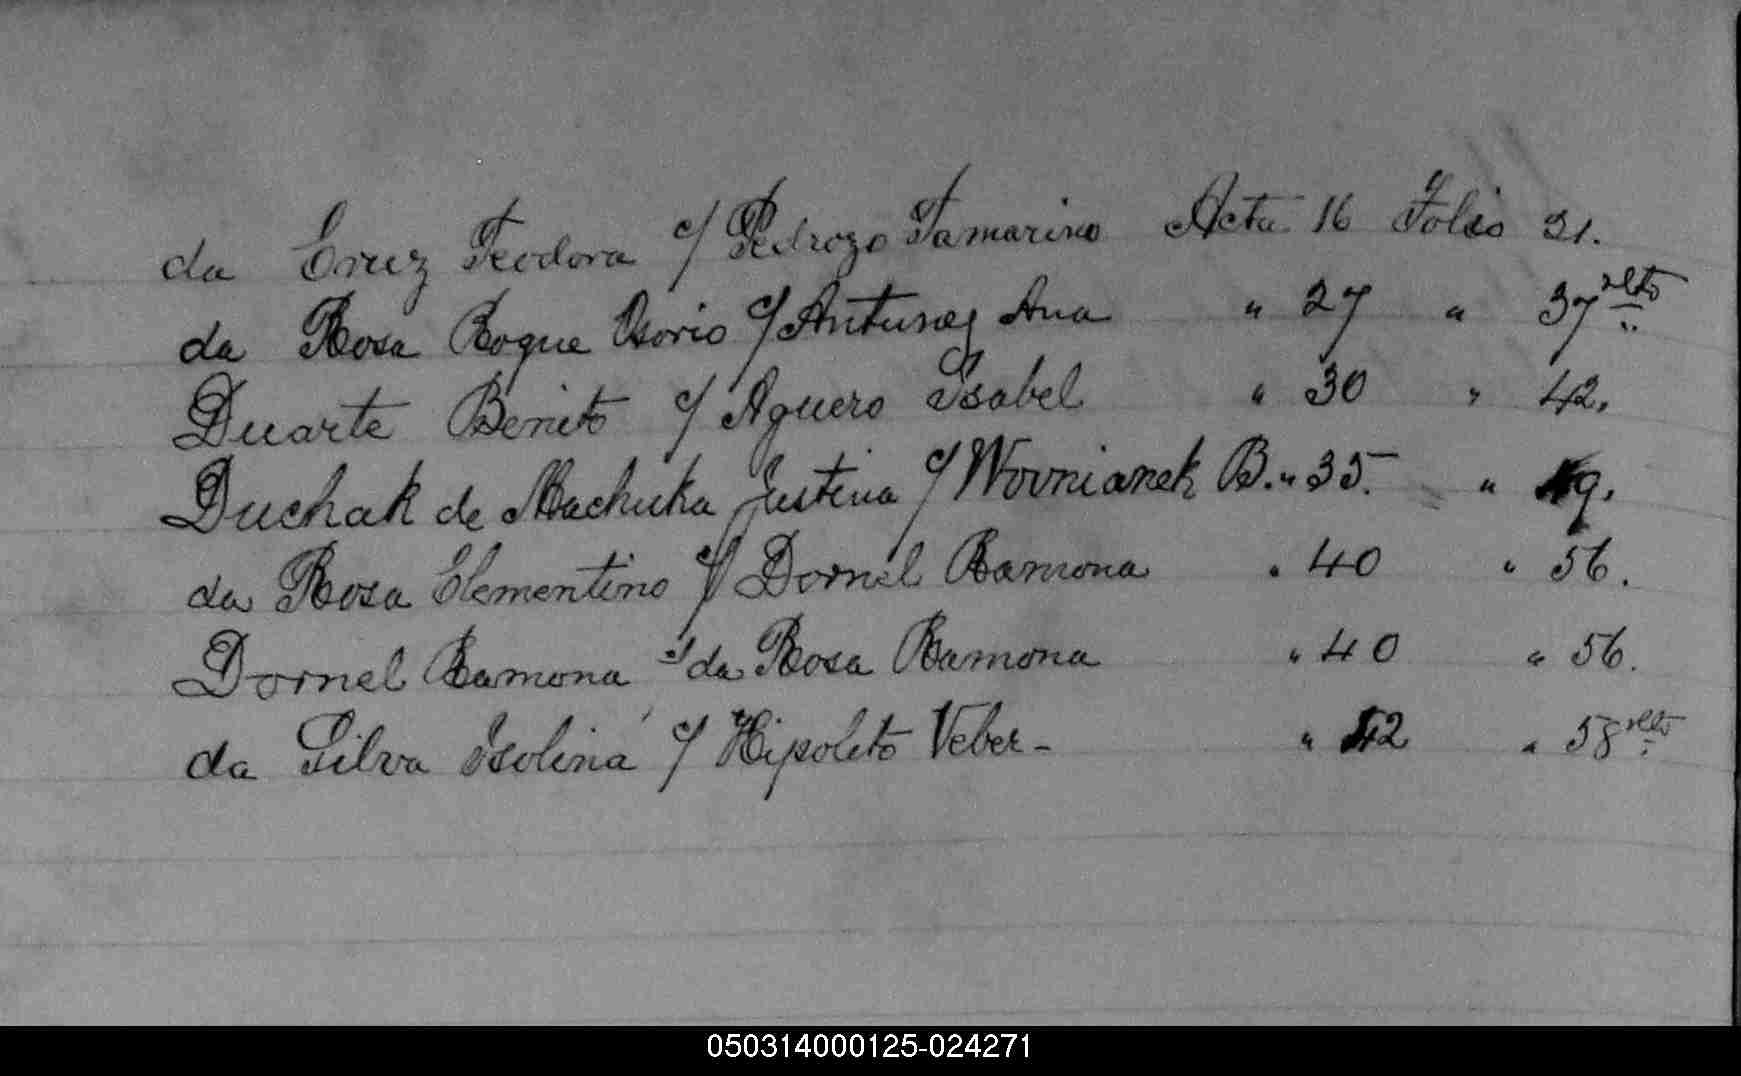 da Cruz Teodora c/ Pedrozo Tamarino Acta 16 Folio 21.
da Rosa Roque Osorio c/ Antunez Ana " 27 " 37 vlto
Duarte Benito c/ Aguero Isabel " 30 " 42.
Duchak de Machuka Justina c/ Wovnianek B. " 35. " 49.
da Rosa Clementino c/ Dornel Ramona " 40 " 56.
Dornel Ramona c/ da Rosa Ramona " 40 " 56.
da Silva Isolina c/ Hipolito Veber - " 42 " 58 vlto
050314000125-024271